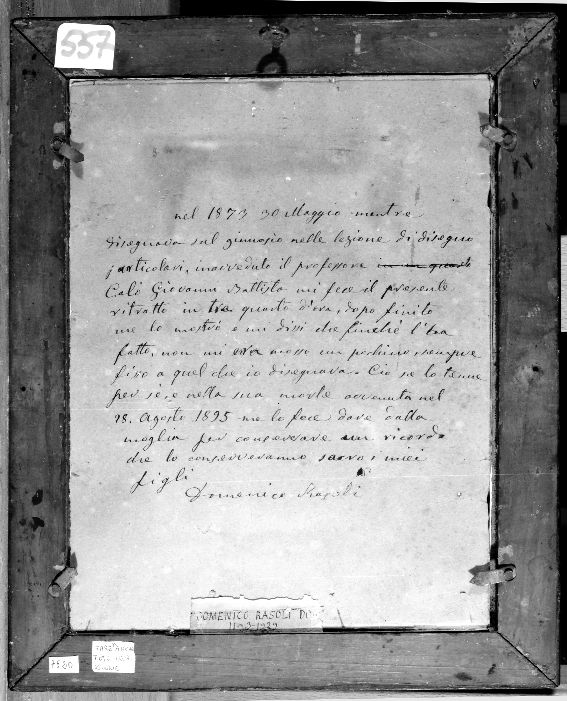 557
nel 1873 30 Maggio mentre
disegnava sul ginnasio nelle lezione di disegno
particolari, inavveduto il professore in un quarto
Calò Giovanni Battista mi fece il presente
ritratto in tre quarto d'ora, dopo finito
me lo mostrò e mi dissi che finchè l'ha
fatto, non mi era mosso un pochino, sempre
fiso a quel che io disegnava. Ciò se lo tenne
per sè, e nella sua morte avvenuta nel
28. Agosto 1895 me lo fece dare dalla
moglia per conservare un ricordo
che lo conserveranno i miei
figli
Domenico Rasoli
DOMENICO RASOLI